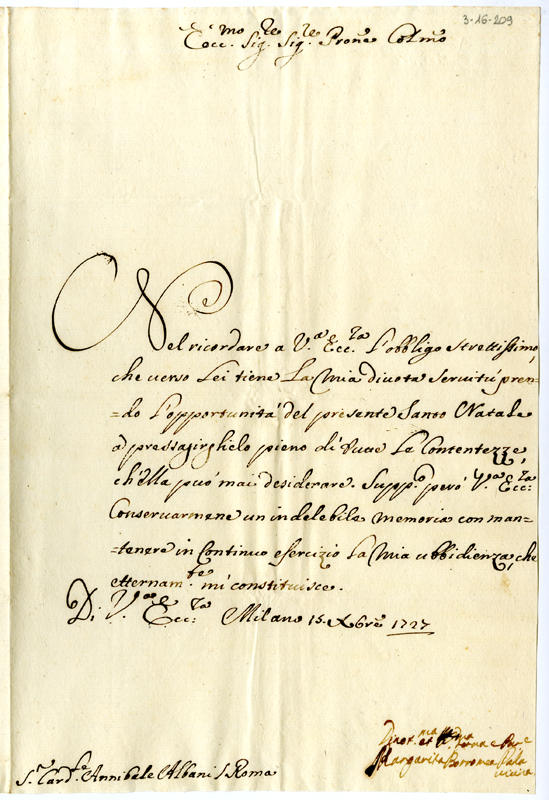 3-16-209
Ecc.mo Sig.re Sig.re Prone Colmo
Nel ricordare a V.a Ecc.za l'obbligo strettissimo,
che verso Lei tiene La Mia divota Servitú pren-
=do l'opportunitá del presente Santo Natale
á pressagirglielo pieno di tutte Le Contentezze,
ch'ella puó mai desiderare. Supp.o peró V.a Ecc.za
Conservarmene un indelebile memoria con man-
=tenere in Continuo esercizio La Mia ubbidienza, che
etternam.te mi constituisce.
Di V.a Ecc.za Milano 15. Xbre 1727
S.r Card.le Annibale Albani / Roma
Margarita Borromea